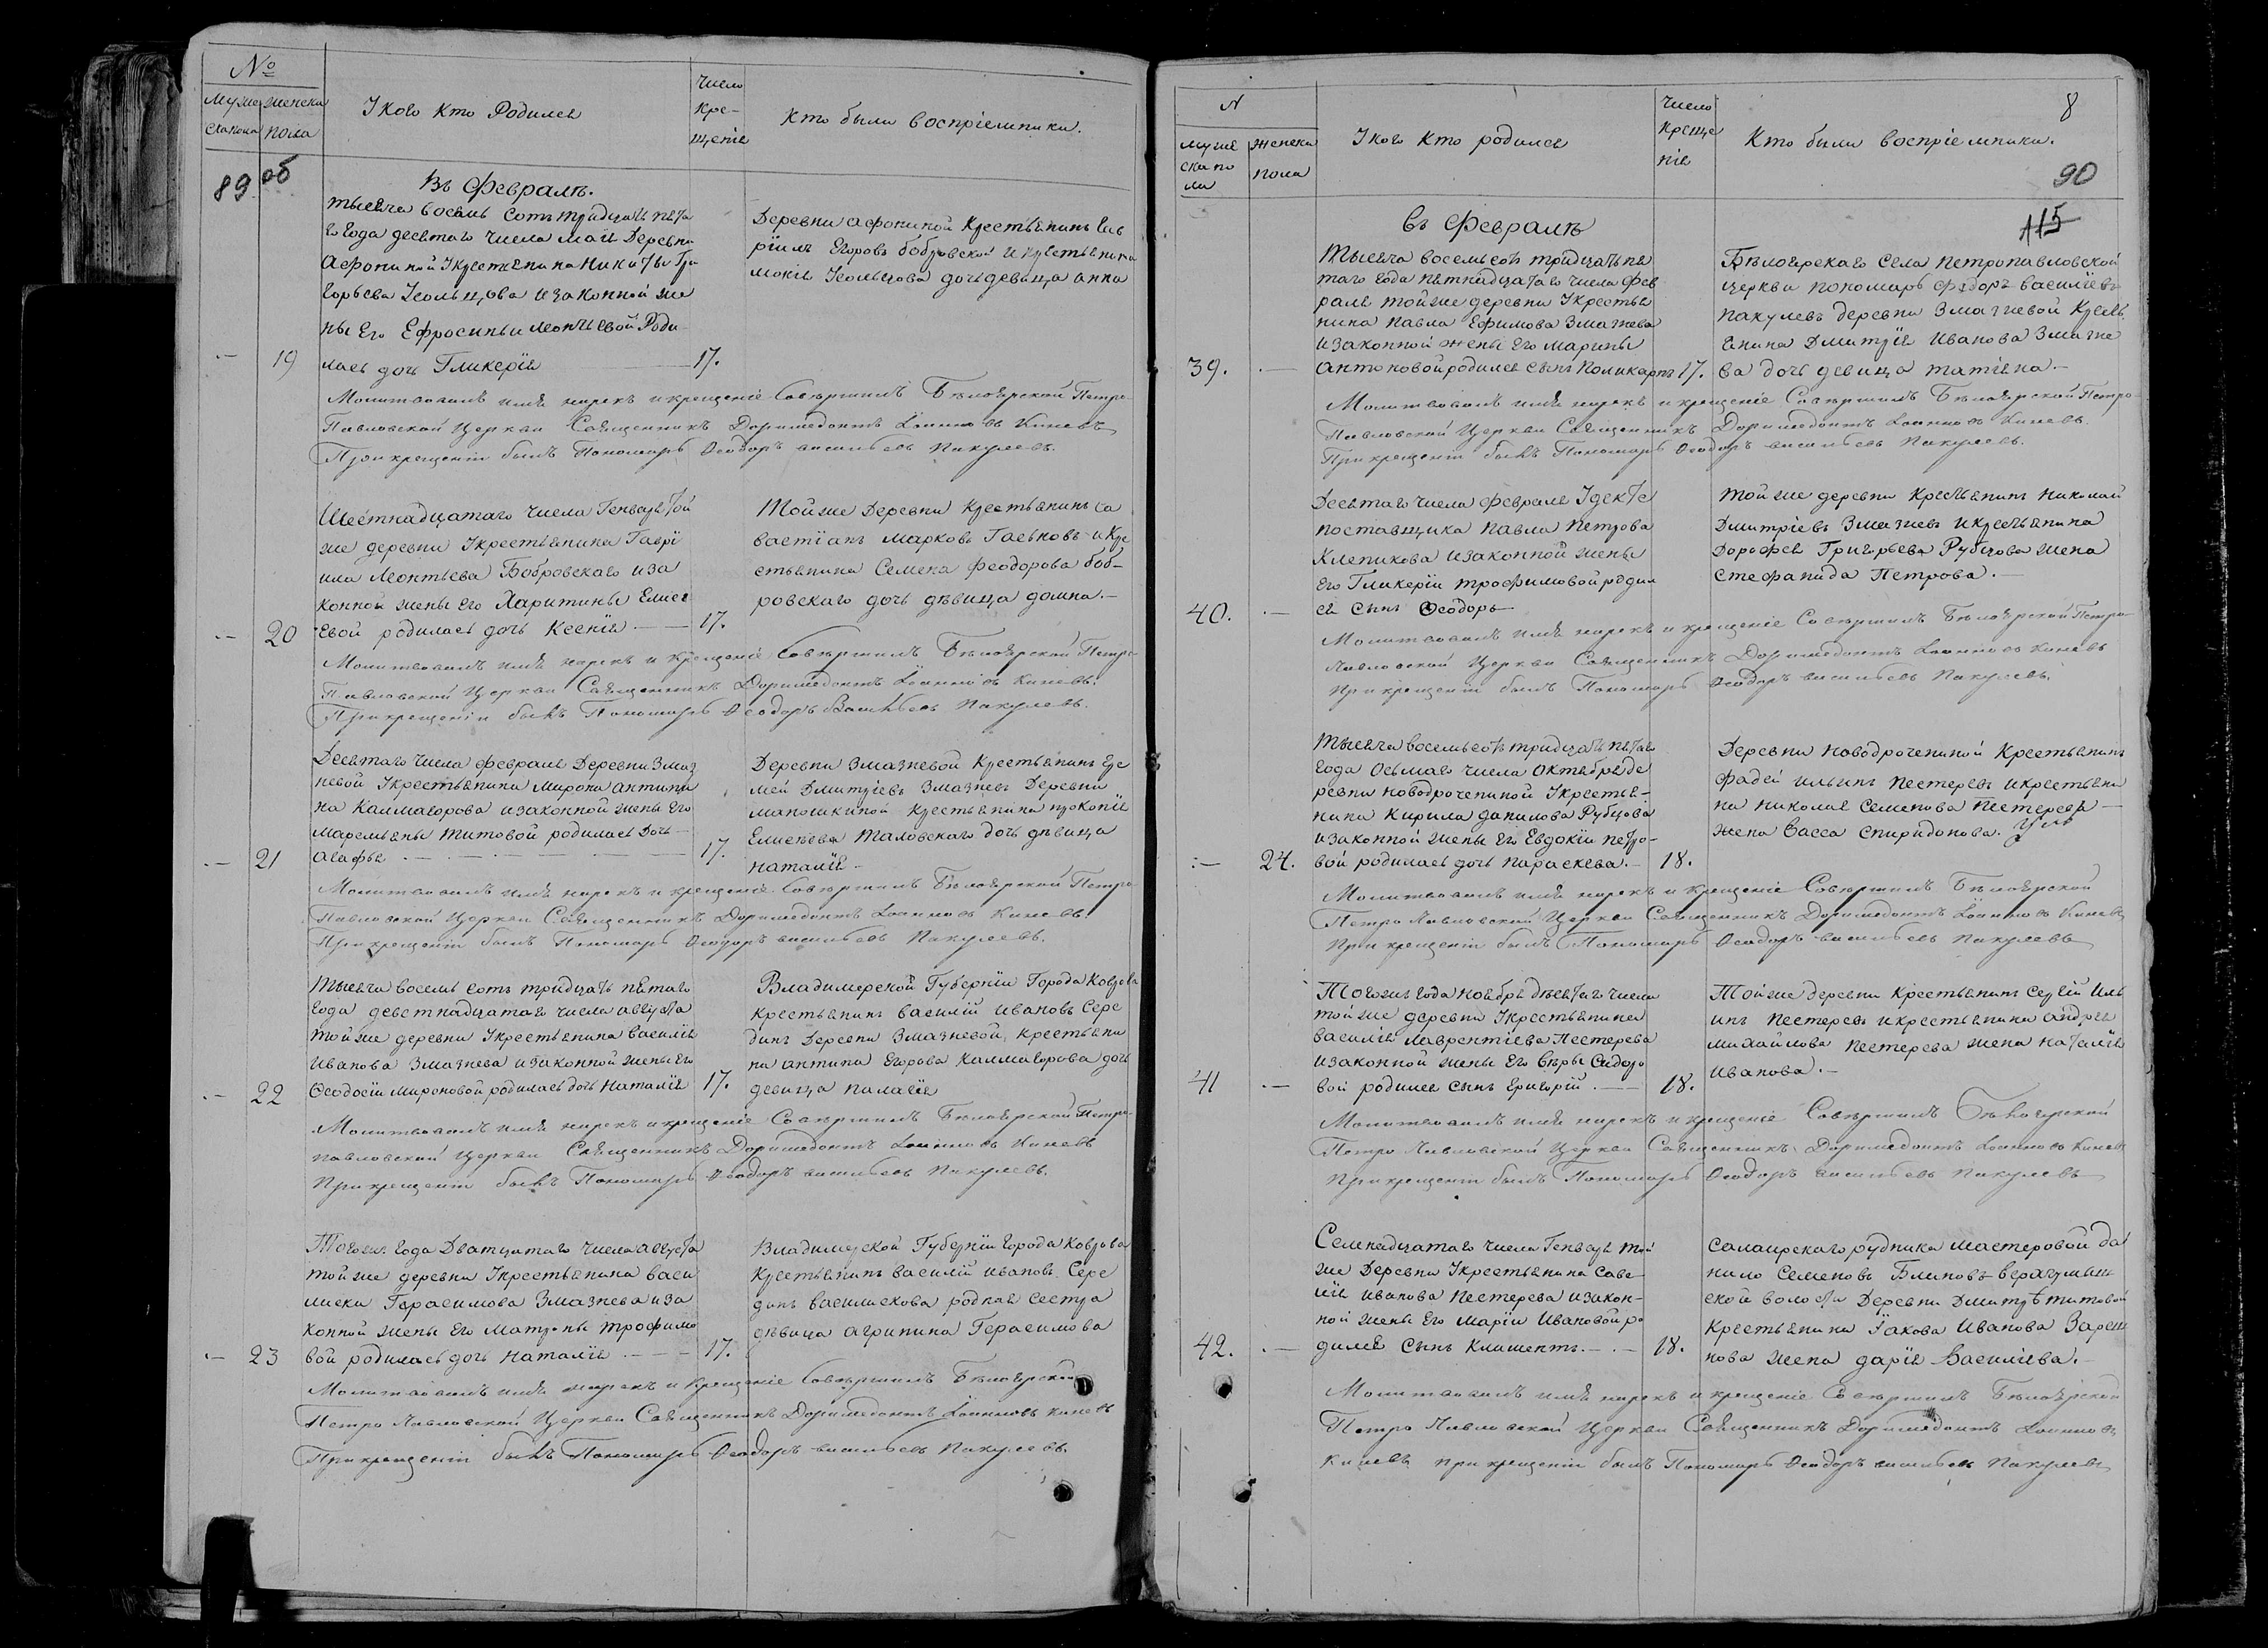 №
Муже женска
ска пола пола
У кого кто Родился
Число
Кре-
щенія
Кто были воспріемники.
89 об
Въ Февралѣ.
тысяча восемь сотъ тридцать пята
го года десятаго числа маія Деревни
Афониной Укрестьянина Никиты Гри
горьева Усольцова изаконной же
ны Его Ефросиньи Леонтьевой Роди
— 19 лась дочь Гликерія 17.
Деревни афониной Крестьянинъ
Егоровъ бобровской икрестьянина
мокія Усольцова дочь девица анна
Молитвовалъ имя нарекъ и крещеніе Совершилъ Бѣлоярской Петро-
Павловской Церкви Священникъ Доримедонтъ Іоанновъ Киневъ
При крещеніи былъ Пономарь Ѳеодоръ васильевъ Пакулевъ.
Шестнадцатаго числа Генваря той
же деревни Укрестьянина Гаврі
ила Леонтьева Бобровскаго иза
конной жены его Харитины Елисе
— 20 евой родилась дочь Ксенія — 17.
Тойже Деревни Крестьянинъ са
вастіанъ марковъ Гаськовъ и Кре
стьянина Семена феодорова боб-
ровскаго дочь дѣвица домна.—
Молитвовалъ имя нарекъ и Крещеніе Совершилъ Бѣлоярской Петро-
Павловской Церкви Священникъ Доримедонтъ Іоанновъ Киневъ.
При крещеніи былъ Пономарь Ѳеодоръ Васильевъ Пакулевъ.
Десятаго числа февраля Деревни Змаз
невой Укрестьянина Мирона антипи
на Калмагорова изаконной жены Его
Маремьяны Титовой родилась Дочь
— 21 агафья — 17.
Деревни Змазневой Крестьянинъ Ере
мей Дмитріевъ Змазневъ Деревни
маношкиной Крестьянина прокопія
Елисеева Таловскаго дочь дѣвица
Наталія
Молитвовалъ имя нарекъ и крещеніе Совершилъ Бѣлоярской Петро-
Павловской Церкви Священникъ Доримедонтъ Іоанновъ Киневъ.
При крещеніи былъ Пономарь Ѳеодоръ васильевъ Пакулевъ.
Тысяча восемь сотъ тридцать пятаго
года девятнадцатаго числа августа
тойже деревни Укрестьянина василія
Иванова Змазнева изаконной жены Его
— 22 Ѳеодосіи Мироновой родилась дочь Наталія 17.
Владимерской Губерніи Города Коврова
крестьянинъ василій ивановъ Сере
динъ Деревни Змазневой крестьяни
на антипа Егорова Калмагорова дочь
девица палагія
Молитвовалъ имя нарекъ и крещеніе Совершилъ Бѣлоярской Петро-
павловской церкви Священникъ Доримедонтъ Іоанновъ Киневъ
При крещеніи былъ Пономарь Ѳеодоръ васильевъ Пакулевъ.
Тогоже Года Двадцатаго числа августа
тойже деревни Укрестьянина васи
лиска Герасимова Змазнева иза
конной жены Его Матрены трофимо
— 23 вой родилась дочь Наталія — 17.
Владимерской Губерніи города Коврова
Крестьянинъ василій ивановъ Сере
динъ василискова родная сестра
дѣвица агрипина Герасимова
Молитвовалъ имя нарекъ и Крещеніе Совершилъ Бѣлоярской
Петро Павловской Церкви Священникъ Доримедонтъ Іоанновъ Киневъ
При крещеніи былъ Пономарь Ѳеодоръ васильевъ Пакулевъ.
N
муже женска
ска по пола
ла
У кого кто родился
Число
Креще
нія
Кто были воспріемники.
8
90
115
въ Февралѣ
Тысяча восемьсотъ тридцать пя
таго года пятнадцатаго числа Фев
раля тойже деревни Укрестья
нина Павла Ефимова Змазнева
изаконной жены его Марины
39. — антоновой родился сынъ Поликарпъ 17.
Бѣлоярскаго Села петропавловской
церкви пономарь Федоръ василіевъ
пакулевъ деревни Змазневой Крест
янина Дмитрія Иванова Змазне
ва дочь девица татіяна.—
Молитвовалъ имя нарекъ и крещеніе Совершилъ Бѣлоярской Петро-
Павловской Церкви Священникъ Доримедонтъ Іоанновъ Киневъ.
При крещеніи былъ Пономарь Ѳеодоръ васильевъ Пакулевъ.
Десятаго числа февраля
поставщика павла петрова
Клепикова изаконной жены
его Гликеріи трофимовой родил
40. — ся сынъ Ѳеодоръ
тойже деревни Крестьянинъ Николай
Дмитріевъ Змазневъ икрестьянина
Дорофея Григорьева Рубцова жена
стефанида Петрова.—
Молитвовалъ имя нарекъ и крещеніе Совершилъ Бѣлоярской Петро-
Павловской Церкви Священникъ Доримедонтъ Іоанновъ Киневъ
При крещеніи былъ Пономарь Ѳеодоръ васильевъ Пакулевъ.
Тысяча восемьсотъ тридцать пятаго
года осьмаго числа октября де
ревни новодрочениной Укрестья-
нина Кирила данилова Рубцова
изаконной жены Его Евдокіи петро-
— 24. вой родилась дочь параскева.— 18.
Деревни новодрочениной Крестьянинъ
фадей ильинъ пестеревъ икрестьяни
на николая семенова пестерева —
жена васса спиридонова.
Молитвовалъ имя нарекъ и крещеніе Совершилъ Бѣлоярской
Петро Павловской Церкви Священникъ Доримедонтъ Іоанновъ Киневъ
При крещеніи былъ Пономарь Ѳеодоръ васильевъ Пакулевъ
Тогоже года ноября числа
тойже деревни Укрестьянина
василія лаврентіева Пестерева
изаконной жены Его вѣры Сидоро
41 — вой родился сынъ григорій — 18.
Тойже деревни крестьянинъ Сергѣй Иль
инъ пестеревъ икрестьянина андрея
михайлова пестерева жена наталія
иванова.—
Молитвовалъ имя нарекъ и крещеніе Совершилъ Бѣлоярской
Петро Павловской Церкви Священникъ Доримедонтъ Іоанновъ Киневъ
При крещеніи былъ Пономарь Ѳеодоръ васильевъ Пакулевъ
Семнадцатаго числа Генваря той
же Деревни Укрестьянина Саве
лія иванова пестерева изакон-
ной жены Его Маріи Ивановой ро
42. — дился сынъ Климентъ.— 18.
Салаирскаго рудника мастеровой да
нило Семеновъ Блиновъ
ской волости Деревни Дмитро титовой
Крестьянина Іакова Иванова
нова жена дарія Василіева.
Молитвовалъ имя нарекъ и крещеніе Совершилъ Бѣлоярской
Петро Павловской Церкви Священникъ Доримедонтъ Іоанновъ
Киневъ при крещеніи былъ Пономарь Ѳеодоръ васильевъ Пакулевъ